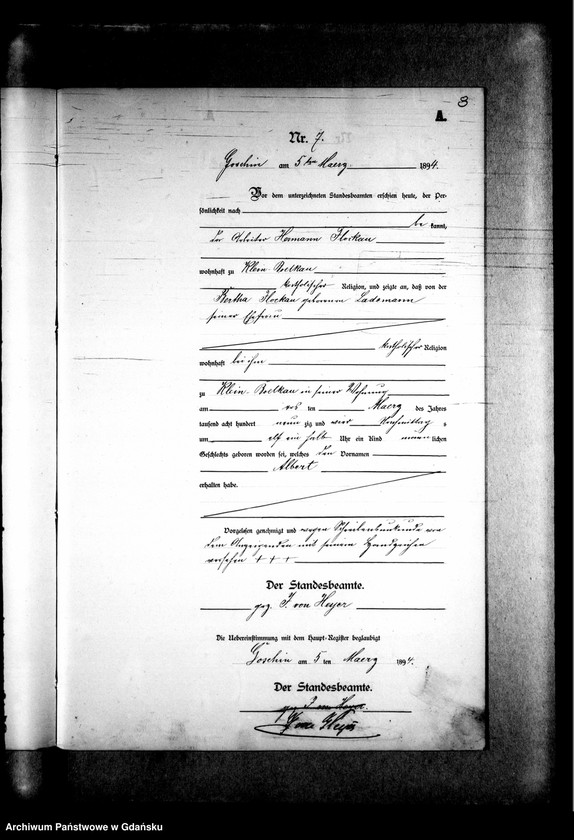 8
A.
Nr. 7.
Goschin am 5ten Maerz 1894.
Vor dem unterzeichneten Standesbeamten erschien heute, der Per-
sönlichkeit nach
be kannt,
der Arbeiter Hermann Flockau
wohnhaft zu Klein Boelkau
katholischer Religion, und zeigte an, daß von der
Bertha Flockau geborenen Ladomann
seiner Ehefrau
katholischer Religion
wohnhaft bei ihm
zu Klein Boelkau in seiner Wohnung
am ten Maerz des Jahres
tausend acht hundert neun zig und vier Nachmittag s
um elf ein halb Uhr ein Kind männ lichen
Geschlechts geboren worden sei, welches den Vornamen
Albert
erhalten habe.
Vorgelesen, genehmigt und wegen Schreibensunkunde von
dem Anzeigenden mit seinem Handzeichen
versehen + + +
Der Standesbeamte.
gez. F. von Heyer
Die Uebereinstimmung mit dem Haupt-Register beglaubigt
Goschin am 5 ten Maerz 1894.
Der Standesbeamte.
Archiwum Państwowe w Gdańsku